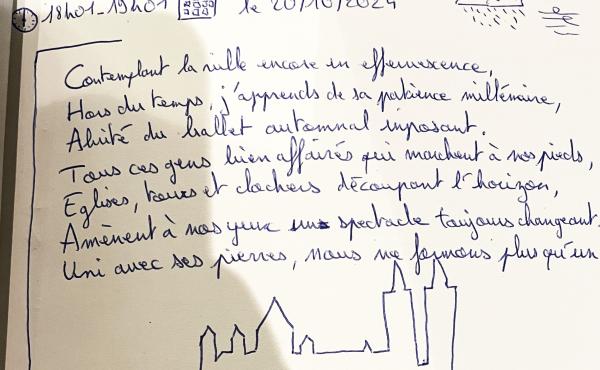 18h01-19h01 le 20/10/2024
Contemplant la ville encore en effervescence,
Hors du temps, j'apprends de sa patience millénaire,
Abrité du ballet automnal imposant.
Tous ces gens bien affairés qui marchent à nos pieds,
Eglises, tours et clochers découpant l'horizon,
Amènent à nos yeux un spectacle toujours changeant.
Uni avec ses pierres, nous ne formons plus qu'un